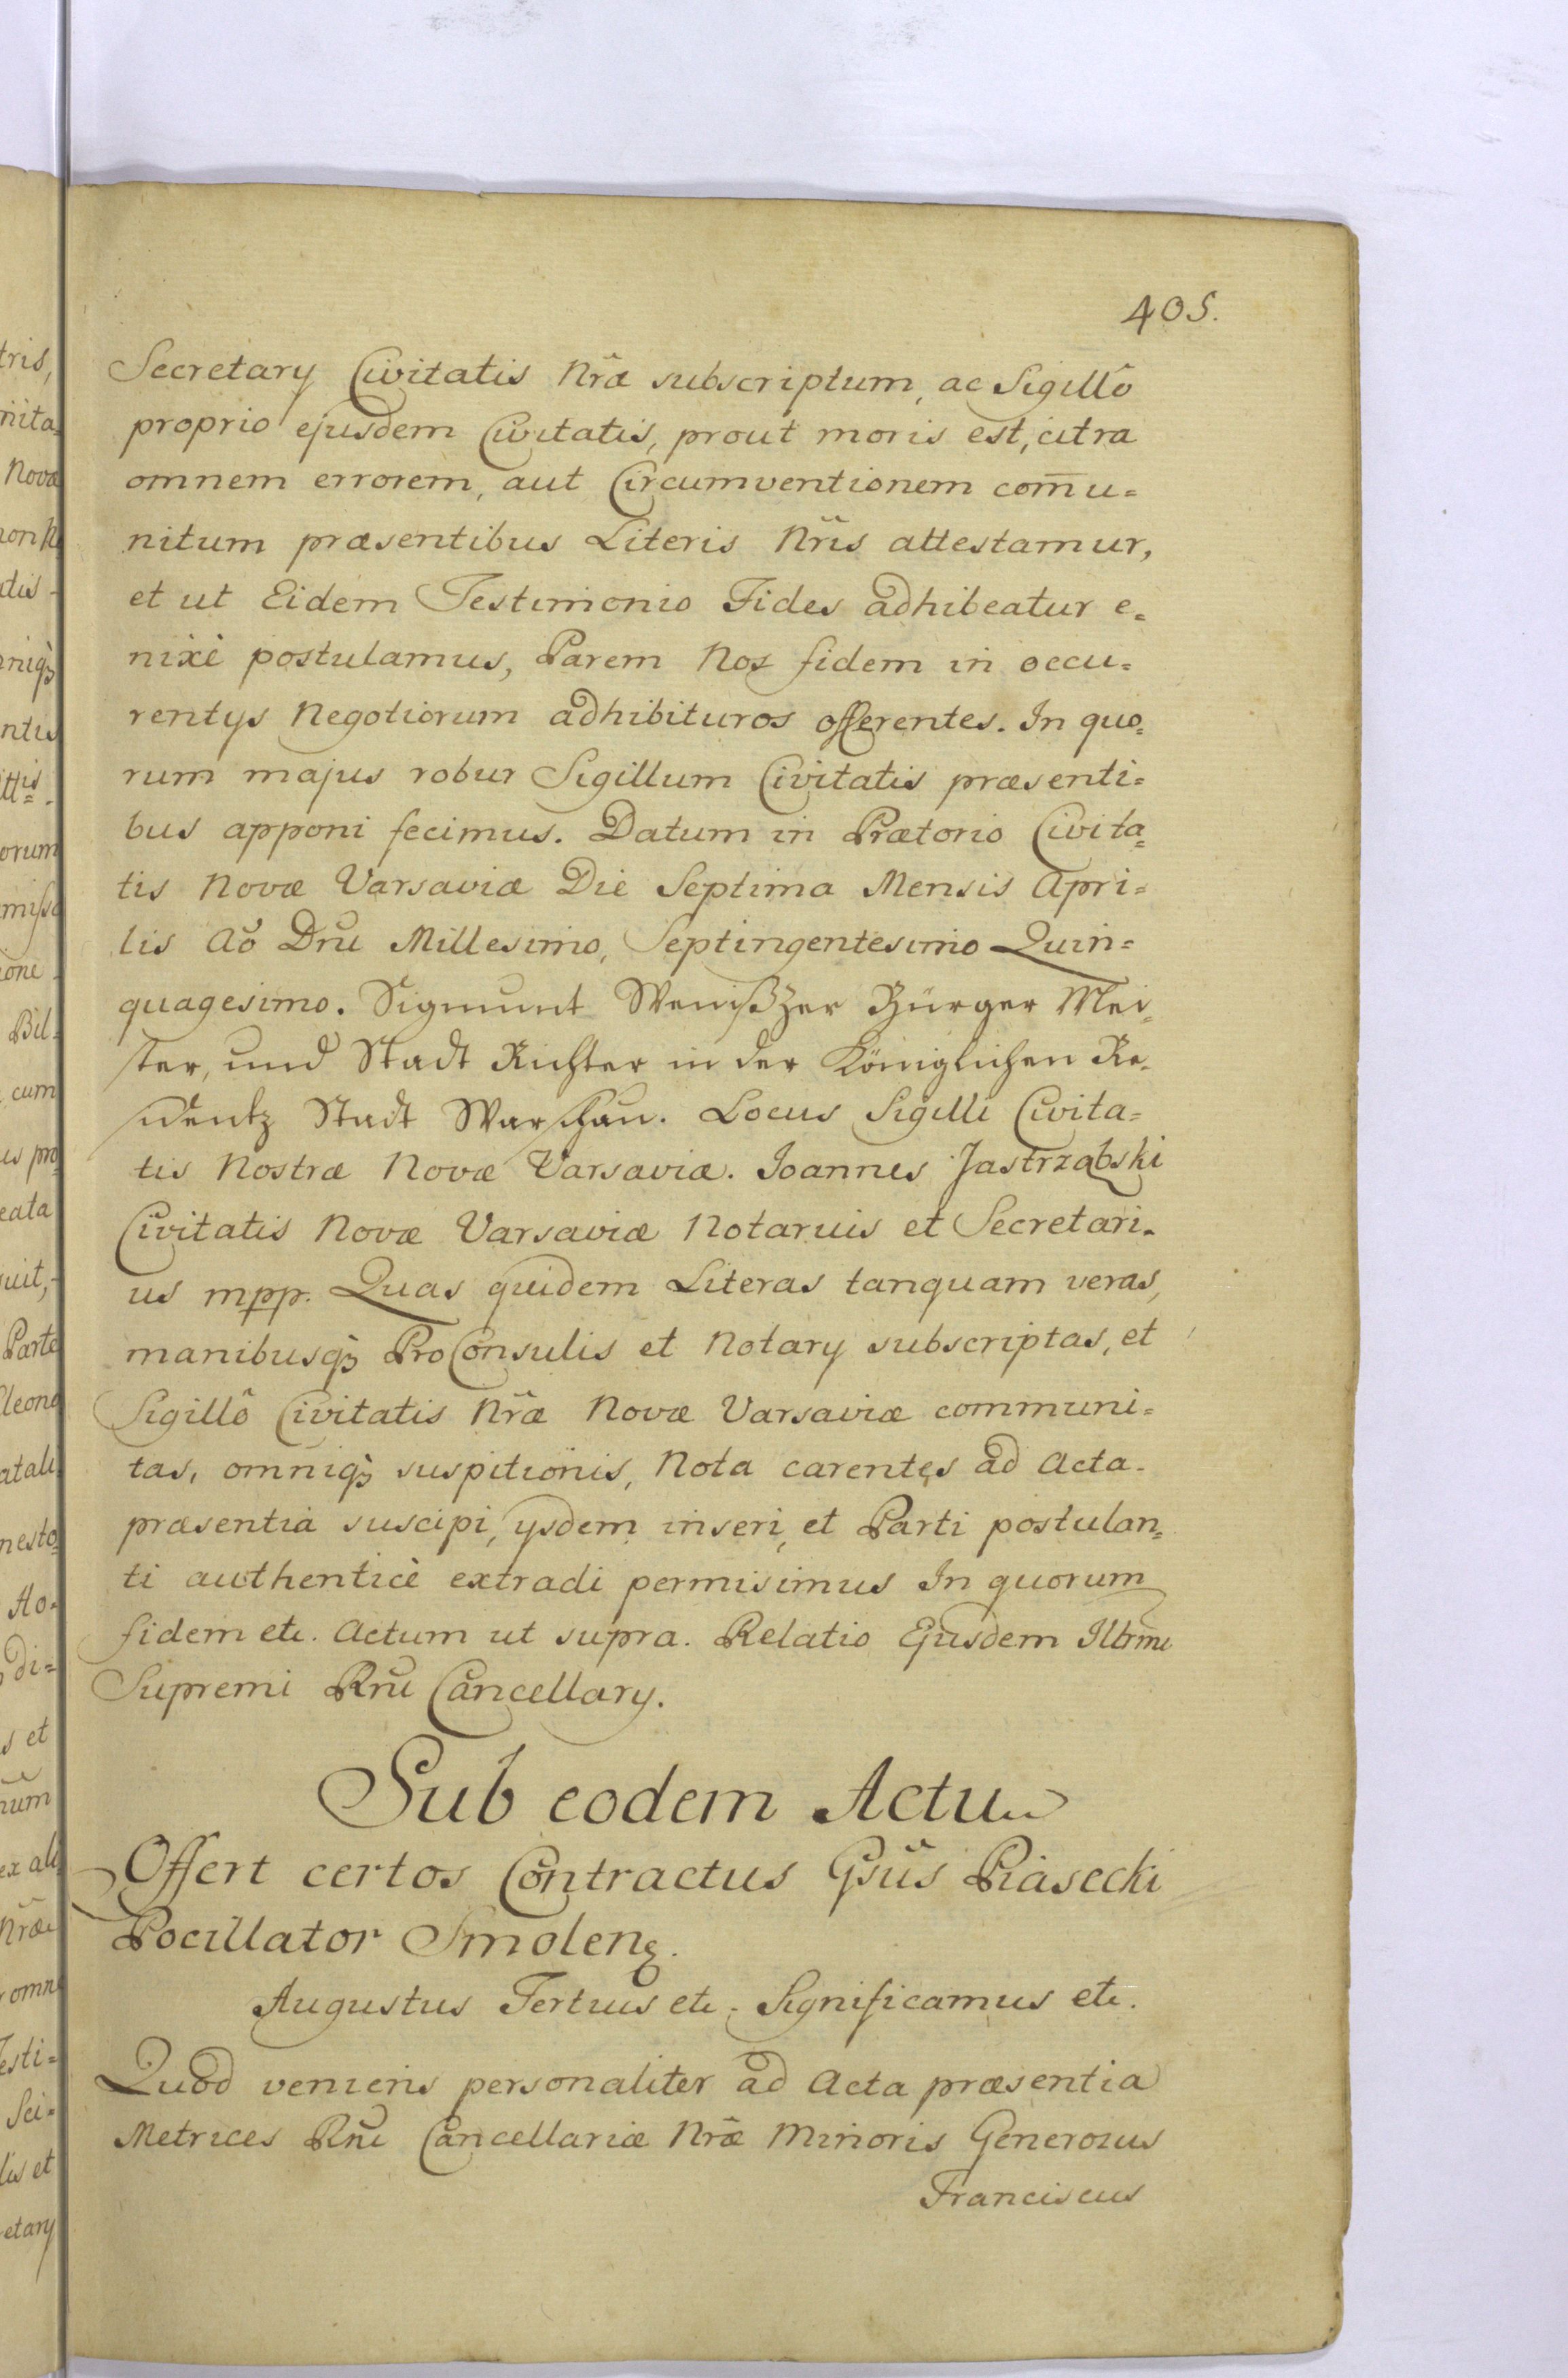 405.
Secretary Civitatis Nr̃æ subscriptum, ac Sigillô
proprio ejusdem Civitatis, prout moris est, citra
omnem errorem, aut Circumventionem com̄u=
nitum præsentibus Literis Nr̃is attestamur,
et ut Eidem Testimonio Fides adhibeatur e=
nixè postulamus, Parem Nos fidem in occu=
rentys Negotiorum adhibituros offerentes. In quo=
rum majus robur Sigillum Civitatis præsenti=
bus apponi fecimus. Datum in Prætorio Civita=
tis Novæ Varsaviæ Die Septima Mensis Apri=
lis Aõ Dñi Millesimo, Septingentesimo Quin=
quagesimo. Sigmunt Bürger Mei=
ster, und Stadt Richter in der Königlichen Re=
sidentz Stadt Warschau. Locus Sigilli Civita=
tis Nostræ Novæ Varsaviæ. Joannes Jastrząbski
Civitatis Novæ Varsaviæ Notarius et Secretari=
us mpp. Quas quidem Literas tanquam veras,
manibusq̃ꝫ ProConsulis et Notary subscriptas, et
Sigillô Civitatis Nr̃æ Novæ Varsaviæ communi=
tas, omniq̃ꝫ suspitionis, Nota carentes ad Acta
præsentia suscipi, ysdem inseri, et Parti postulan=
ti authenticè extradi permisimus In quorum
fidem etc. Actum ut supra. Relatio Ejusdem Illrmi
Supremi Rñi Cancellary.
Sub eodem Actu
Offert certos Contractus Gsũs Piasecki
Pocillator Smolenꝫ.
Augustus Tertius etc. Significamus etc.
Quod veniens personaliter ad Acta præsentia
Metrices Rñi Cancellariæ Nr̃æ Minoris Generosus
Franciscus